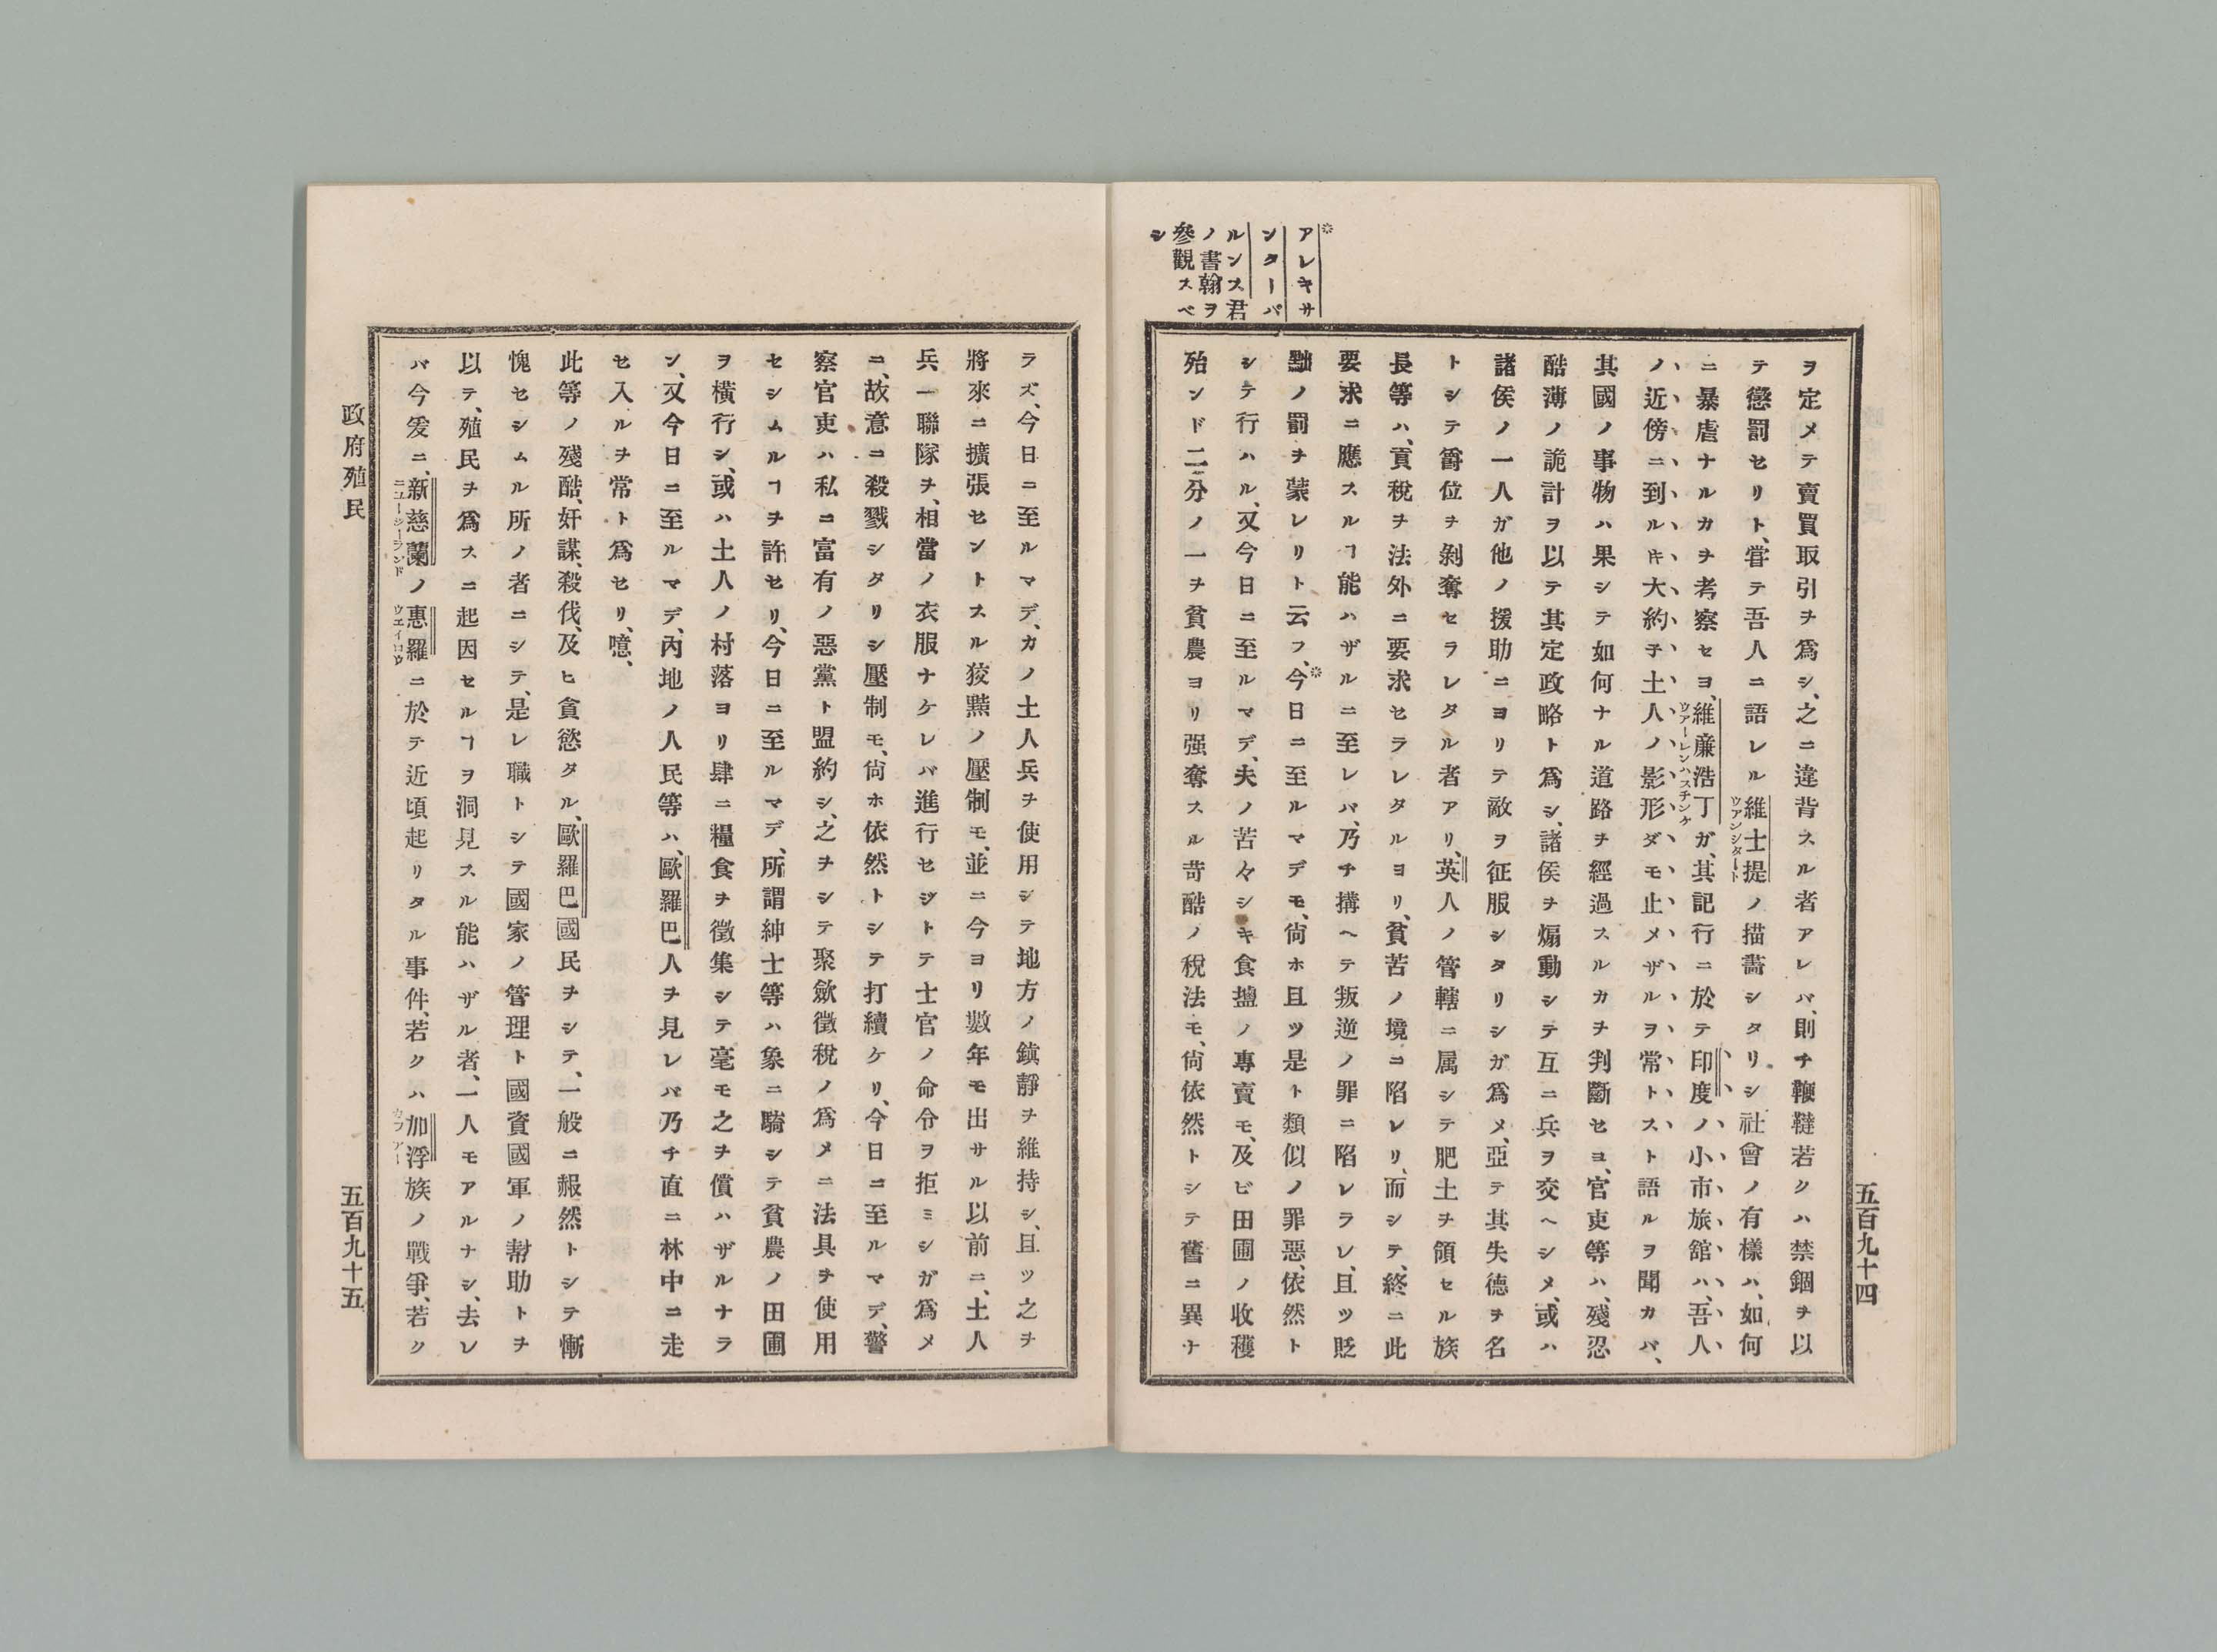 アレキサ
ンターバ
ルンス君
ノ書翰ヲ
參觀スベ
シ
ヲ定メテ賣買取引ヲ爲シ、之ニ違背スル者アレバ、則チ鞭韃若クハ禁錮ヲ以
テ懲罰セリト、甞テ吾人ニ語レル維士提ノ描畵シタリシ社會ノ有樣ハ、如何
ウアンシタート
ニ暴虐ナルカヲ考察セヨ、維廉浩丁ガ、其記行ニ於テ印度ノ小市旅舘ハ、吾人
ウアーレンハスチンケ
ノ近傍ニ到ルキ大約子土人ノ影形ダモ止メザルヲ常トスト語ルヲ聞カバ、
其國ノ事物ハ果シテ如何ナル道路ヲ經過スルカヲ判斷セヨ、官吏等ハ、殘忍
酷薄ノ詭計ヲ以テ其定政略ト爲シ、諸侯ヲ煽動シテ互ニ兵ヲ交ヘシメ、或ハ
諸侯ノ一人ガ他ノ援助ニヨリテ敵ヲ征服シタリシガ爲メ、亞テ其失德ヲ名
トシテ爵位ヲ剝奪セラレタル者アリ、英人ノ管轄ニ属シテ肥土ヲ領セル族
長等ハ、貢稅ヲ法外ニ要求セラレタルヨリ、貧苦ノ境ニ陷レリ、而シテ、終ニ此
要求ニ應スルヿ能ハザルニ至レバ、乃チ搆ヘテ叛逆ノ罪ニ陷レラレ、且ツ貶
黜ノ罰ヲ蒙レリト云フ、今日ニ至ルマデモ、尙ホ且ツ是ト類似ノ罪惡、依然ト
シテ行ハル、又今日ニ至ルマデ、夫ノ苦々シキ食搵ノ專賣モ、及ビ田圃ノ收穫
殆ンド二分ノ一ヲ貧農ヨリ强奪スル苛酷ノ稅法モ、尙依然トシテ舊ニ異ナ
五百九十四
ラズ、今日ニ至ルマデ、カノ土人兵ヲ使用シテ地方ノ鎭靜ヲ維持シ、且ツ之ヲ
將來ニ擴張セントスル狡黠ノ壓制モ、並ニ今ヨリ數年モ出サル以前ニ、土人
兵一聯隊ヲ、相當ノ衣服ナケレバ進行セジトテ士官ノ命令ヲ拒ミシガ爲メ
ニ、故意ニ殺戮シタリシ壓制モ、尙ホ依然トシテ打續ケリ、今日ニ至ルマデ、警
察官吏ハ私ニ富有ノ惡黨ト盟約シ、之ヲシテ聚歛徵稅ノ爲メニ法具ヲ使用
セシムルヿヲ許セリ、今日ニ至ルマデ、所謂紳士等ハ象ニ騎シテ貧農ノ田圃
ヲ横行シ、或ハ土人ノ村落ヨリ肆ニ糧食ヲ徵集シテ毫モ之ヲ償ハザルナラ
ン、又今日ニ至ルマデ、內地ノ人民等ハ、歐羅巴人ヲ見レバ乃チ直ニ林中ニ走
セ入ルヲ常ト爲セリ、噫、
此等ノ殘酷、奸謀、殺伐、及ヒ貪慾タル、歐羅巴國民ヲシテ、一般ニ赧然トシテ慚
愧セシムル所ノ者ニシテ、是レ職トシテ國家ノ管理ト國資國軍ノ幇助トヲ
以テ、殖民ヲ爲スニ起因セルヿヲ洞見スル能ハザル者、一人モアルナシ、去レ
バ今爰ニ、新慈蘭ノ惠羅ニ於テ近頃起リタル事件、若クハ加浮族ノ戰爭、若ク
ニユージーランド
ウエイロウ
カフアー
政府殖民
五百九十五